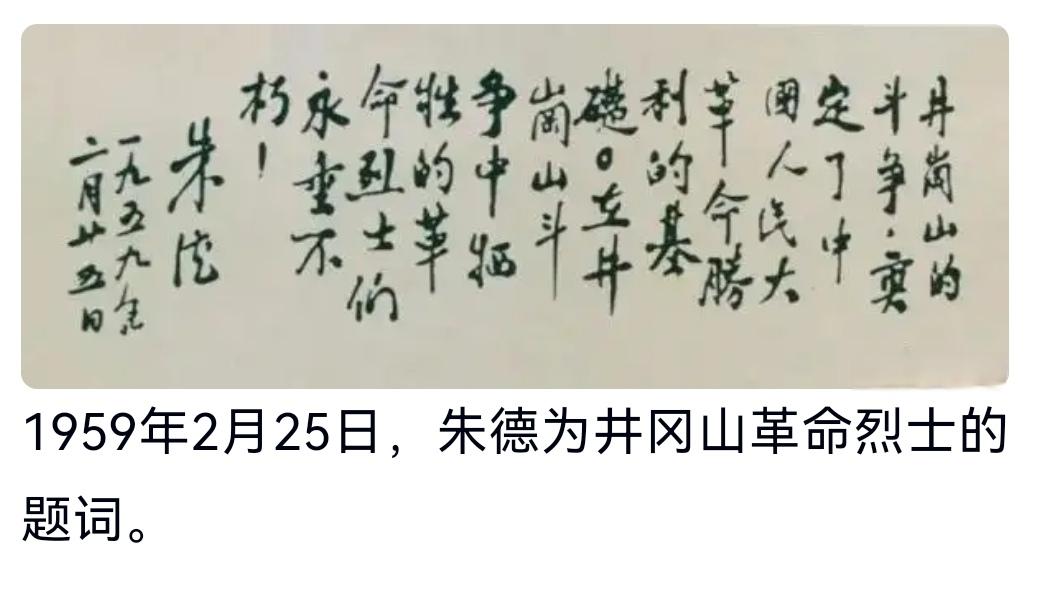 井崗山的
斗争,奠
定了中
國人民大
革命勝
利的基
礎。在井
崗山斗
争中牺
牲的革
命烈士们
永垂不
朽!
朱德
一九五九年
二月廿五日
1959年2月25日，朱德为井冈山革命烈士的
题词。